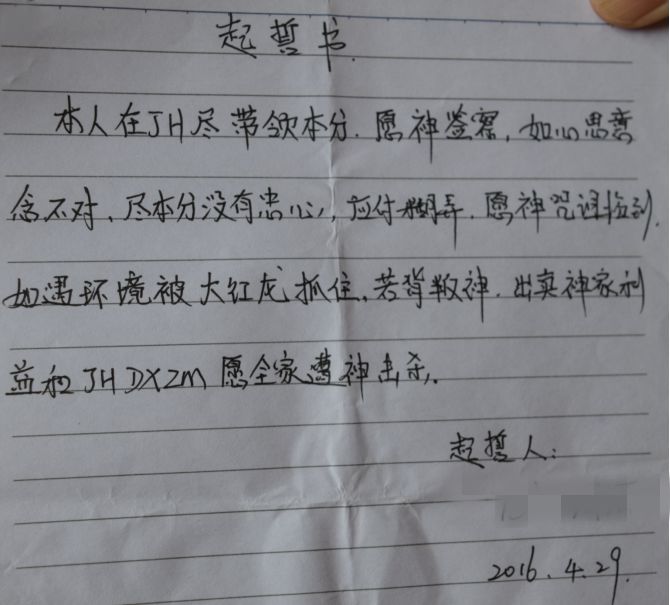 起誓书.
本人在JH尽带领本分.愿神鉴察,如心思意
念不对、尽本分没有忠心,应付糊弄.愿神咒诅临到.
如遇环境被大红龙抓住.若背叛神.出卖神家利
益和JH DXZM愿全家遭神击杀.
起誓人:
2016.4.29.